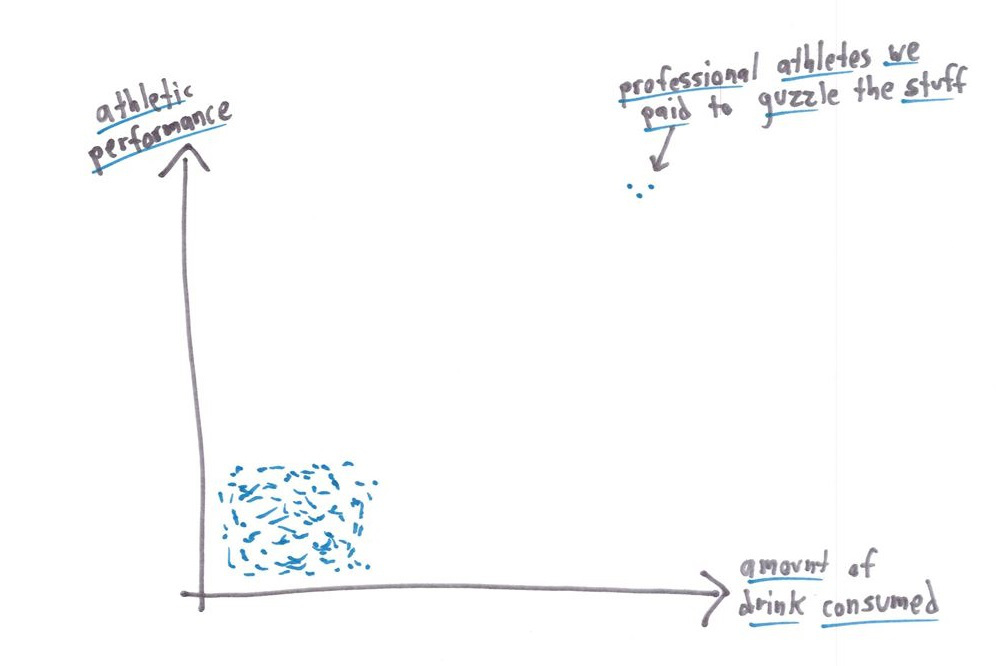 athletic
performance
professional athletes we
paid to guzzle the stuff
amount of
drink consumed